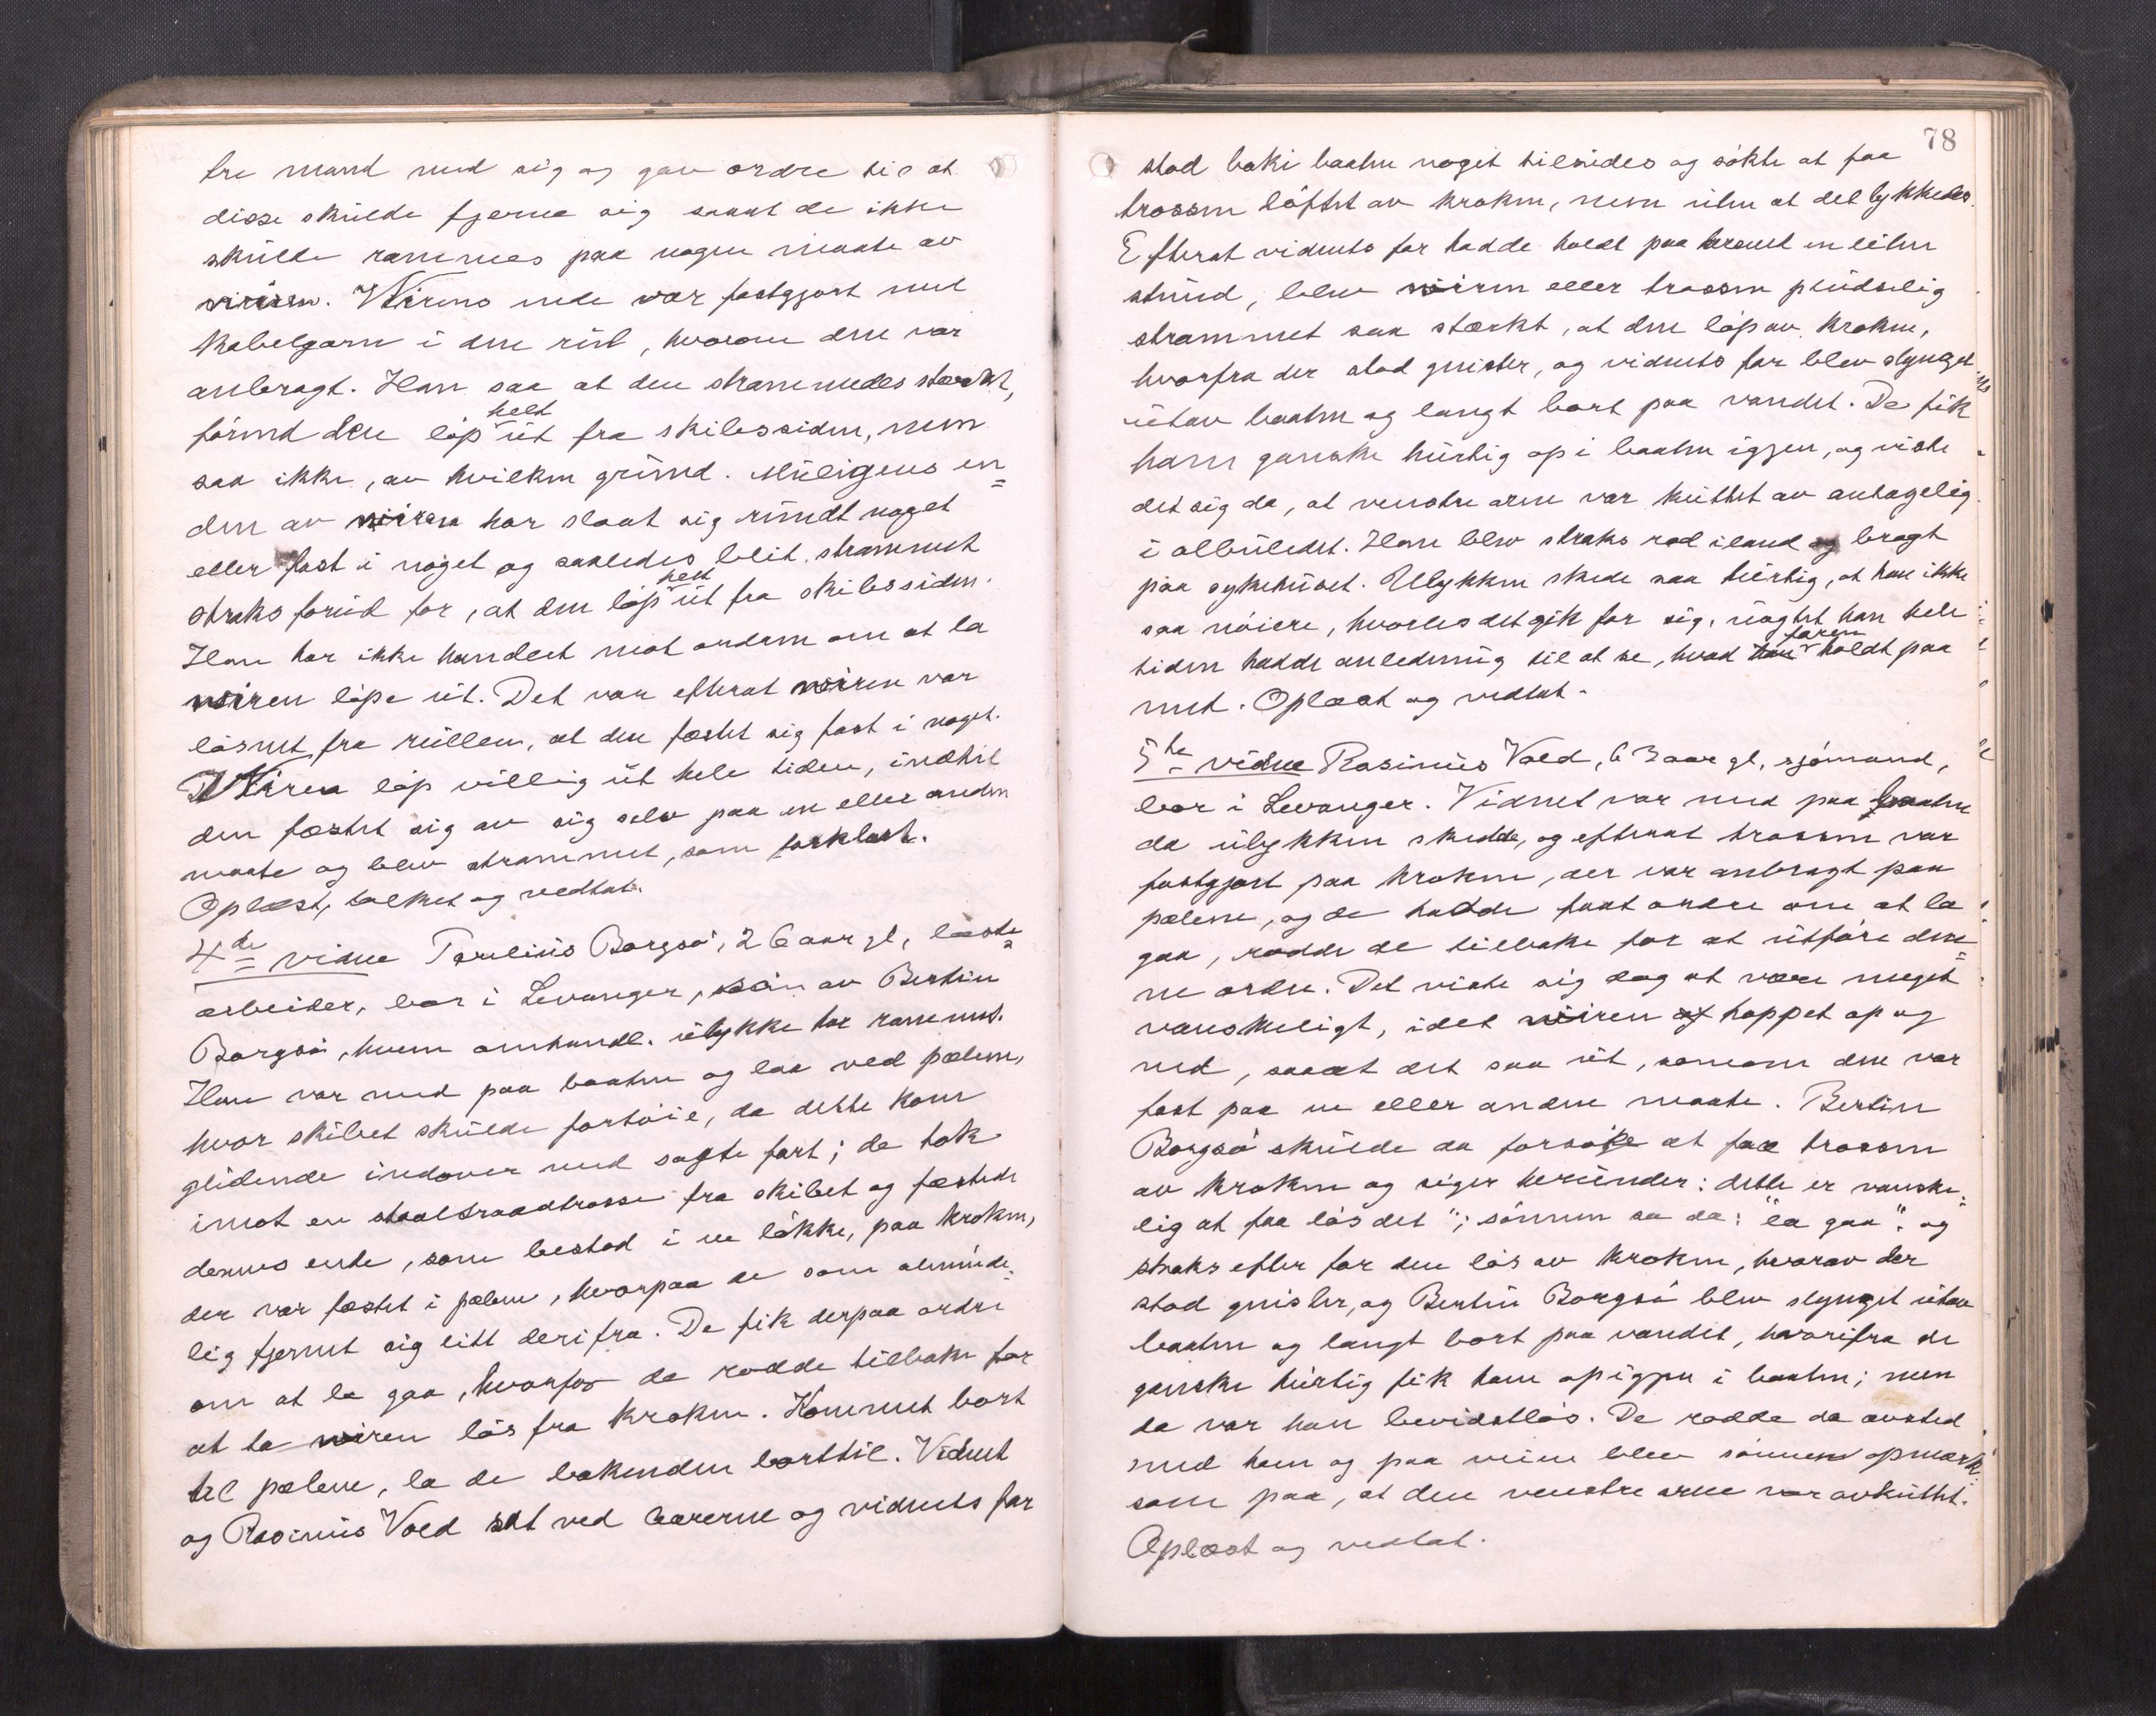 tre mand med sig og gav ordre til at
disse skulde fjerne sig saaat de ikke
skulde rammes paa nogen maate av
wiren. Wirens ende var fastgjort med
kabelgarn i den rul, hvorom den var
anbragt. Han saa at den strammedes stærkt,
førend den løp helt ut fra skibssiden, men
saa ikke, av hvilken grund. Muligens en=
den av wiren har slaat sig rundt noget
eller fast i noget og saaledes blit strammet
straks forud for, at den løp helt ut fra skibssiden.
Han har ikke handlet mot ordren om at la
wiren løpe ut. Det var efterat wiren var
løsnet fra rullen, at den fæstet sig fast i noget.
Wiren løp villig ut hele tiden, indtil
den fæstet sig av sig selv paa en eller anden
maate og blev strammet, som forklart.
Oplæst, tolket og vedtat.
4de vidne Torelius Borgsø, 26 aar gl, laste=
arbeider, bor i Levanger, søn av Bertin
Borgsø, hvem omhandl. ulykke har rammet.
Han var med paa baaten og laa ved pælene,
hvor skibet skulde fortøie, da dette kom
glidende indover med sagte fart; de tok
imot en staaltraadtrosse fra skibet og fæstede
dennes ende, som bestod i en løkke, paa kroken,
der var fæstet i pælene, hvorpaa de som alminde=
lig fjernet sig litt derifra. De fik derpaa ordre
om at la gaa, hvorfor de rodde tilbake for
at ta wiren løs fra kroken. Kommet bort
til pælene, la de bakenden borttil. Vidnet
og Rasinius Vold sat ved aarerne og vidnets far
78
stod bak i baaten noget tilsides og søkte at faa
trossen løftet av kroken, men uten at det lykkedes.
Efterat vidnets far hadde holdt paa hermed en liten
stund, blev wiren eller trossen pludselig
strammet saa stærkt, at den løp av kroken,
hvorfra der stod gnister, og vidnets far blev slynget
utav baaten og langt bort paa vandet. De fik
ham ganske hurtig op i baaten igjen, og viste
det sig da, at venstre arm var kuttet av antagelig
i albuledet. Han blev straks rod iland og bragt
paa sykehuset. Ulykken skede saa hurtig, at han ikke
saa nøiere, hvorledes det gik for sig, uagtet han hele
tiden hadde anledning til at se, hvad faren holdt paa
med. Oplæst og vedtat.
5te vidne Rasinius Vold, 63 aar gl, sjømand,
bor i Levanger. Vidnet var med paa baaten
da ulykken skedde, og efterat trossen var
fastgjort paa kroken, der var anbragt paa
pælene, og de hadde faat ordre om at la
gaa, rodde de tilbake for at utføre den=
ne ordre. Det viste sig dog at være meget
vanskeligt, idet wiren hoppet op og
ned, saaat det saa ut, somom den var
fast paa en eller anden maate. Bertin
Borgsø skulde da forsøke at faa trossen
av kroken og siger herunder: dette er vanske=
lig at faa løs det"; sønnen sa da: "la gaa". og
straks efter for den løs av kroken, hvorav der
stod gnister, og Bertin Borgsø blev slynget utav
baaten og langt bort paa vandet, hvorifra de
ganske hurtig fik ham op igjen i baaten; men
da var han bevidstløs. De rodde da avsted
med ham og paa veien blev sønnen opmerk=
som paa, at den venstre arm var avkuttet.
Oplæst og vedtat.